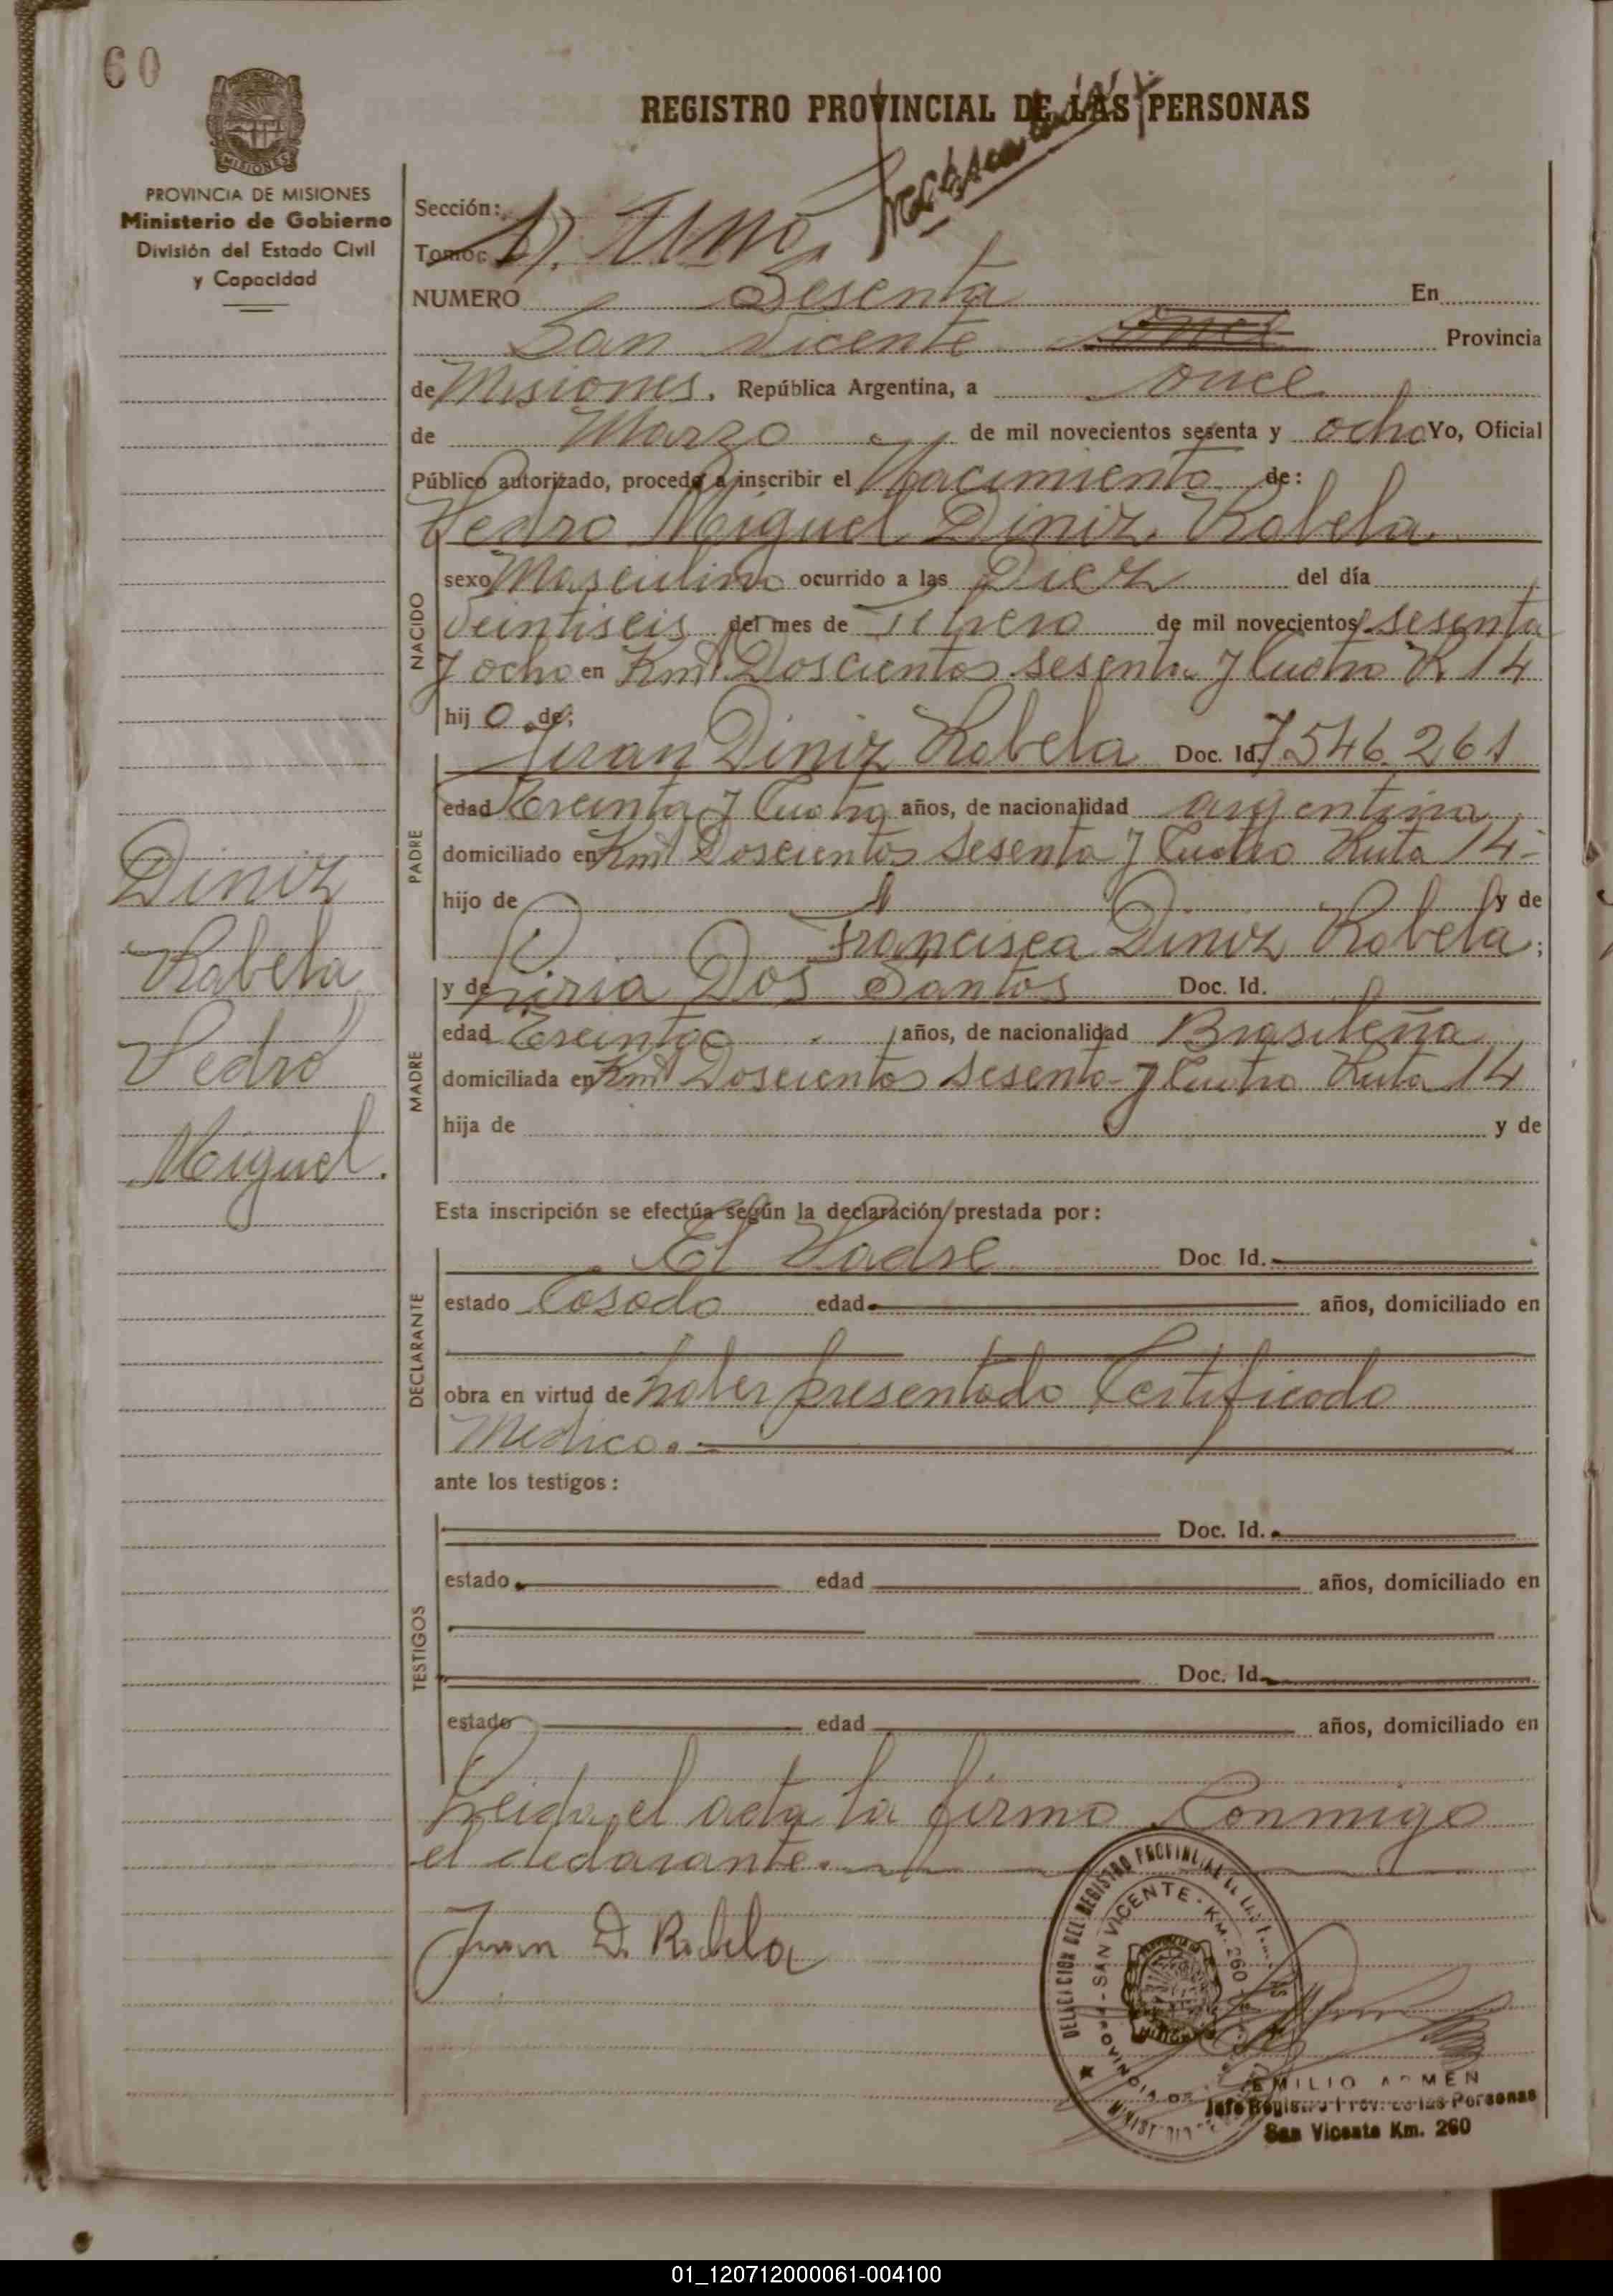 60
REGISTRO PROVINCIAL DE LAS PERSONAS
MISIONES
PROVINCIA DE MISIONES
Ministerio de Gobierno
División del Estado Civil
y Capacidad
Sección:
Tomo: 1), Uno,
NUMERO Sesenta En
San Vicente Once Provincia
de Misiones. República Argentina, a once
de Marzo de mil novecientos sesenta y ocho Yo, Oficial
Público autorizado, procedo a inscribir el Nacimiento de:
Pedro Miguel Diniz Rabela
NACIDO
sexo Masculino ocurrido a las Diez del día
Veintiseis del mes de Febrero de mil novecientos sesenta
y ocho en Km Doscientos sesenta y Cuatro R 14
hij o de;
PADRE
Juan Diniz Rabela Doc. Id. 7546261
edad Treinta y Cuatro años, de nacionalidad argentina
domiciliado en Km Doscientos Sesenta y Cuatro Ruta 14-
hijo de y de
Francisca Diniz Rabela;
MADRE
y de Dos Santos Doc. Id.
edad Treinta años, de nacionalidad Brasileña
domiciliada en Km Doscientos Sesenta y Cuatro Ruta 14
hija de y de
Diniz
Rabela
Pedro
Miguel.
Esta inscripción se efectúa según la declaración prestada por:
DECLARANTE
El Padre Doc Id.
estado Casado edad años, domiciliado en
obra en virtud de haber presentado Certificado
Medico.
ante los testigos:
TESTIGOS
Doc. Id.
estado edad años, domiciliado en
Doc. Id.
estado edad años, domiciliado en
Leida el acta la firma Conmigo
el declarante.
Juan D. Rabela
DELEGACION DEL REGISTRO PROVINCIAL DE LAS
SAN VICENTE - KM. 260
EMILIO
Jefe Registro Prov. de las Personas
San Vicente Km. 260
01_120712000061-004100